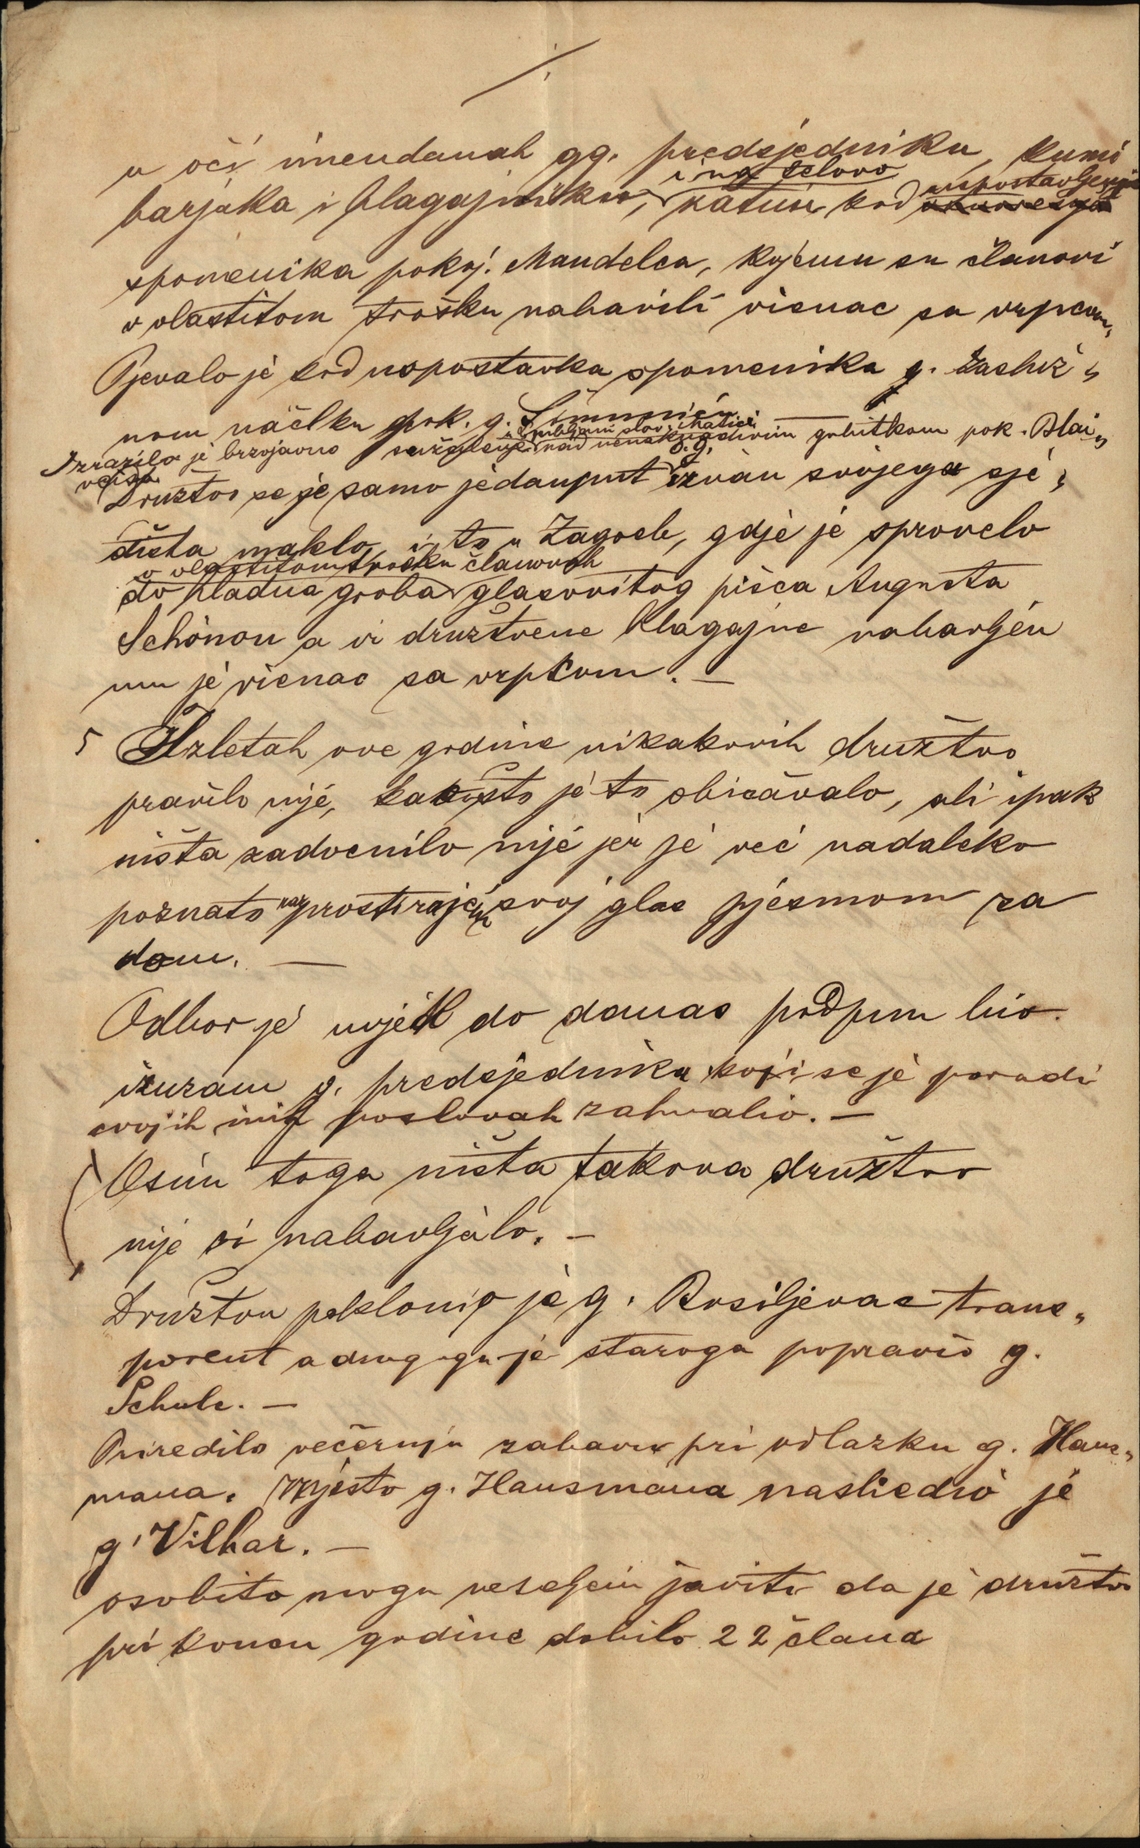 u oči imendanah gg. predsjedniku, kumi
i na Telovo uspostavljenja
barjaka i blagajniku, zatim kod
spomenika pokoj. Mandelca, kojemu su članovi
o vlastitom trošku nabavili vienac sa vrpcom,
Pjevalo je kod uspostavka spomenika g. zasluž„
nom načelku pok. g. Šimuniću
i Ljubljani slov. Matici
Izrazilo je brzojavno sažaljenje nad nenaknadivim gubitkom pok. Blai„
veisa o. g.
Družtvo se je samo jedanput izvan svojega sje„
dišta maklo, i to u Zagreb, gdje je sprovelo
o vlastitom trošku članovah
do hladna groba glasovitog pisca Augusta
Schönou a iz družtvene blagajne nabavljen
mu je vienac sa vrpkom. —
5 Izletah ove godine nikakovih družtvo
pravilo nije, kakošto je to običavalo, ali ipak
ništa zadocnilo nije jer je već nadaleko
poznato prostirajući svoj glas pjesmom za
dom. —
Odbor je uvjek do danas podpun bio
izuzam g. predsjednika koji se je poradi
svojih inih poslovah zahvalio. —
Osim toga ništa takova družtvo
nije si nabavljalo. —
Družtvu poklonio je g. Bosiljevac trans„
parent a drugoga je staroga popravio g.
Schule. —
Priredilo večernju zabavu pri odlazku g. Haus„
mana. Mjesto g. Hausmana nasliedio je
g. Vilhar. —
osobito mogu veseljem javiti da je družtvo
pri koncu godine dobilo 22 člana